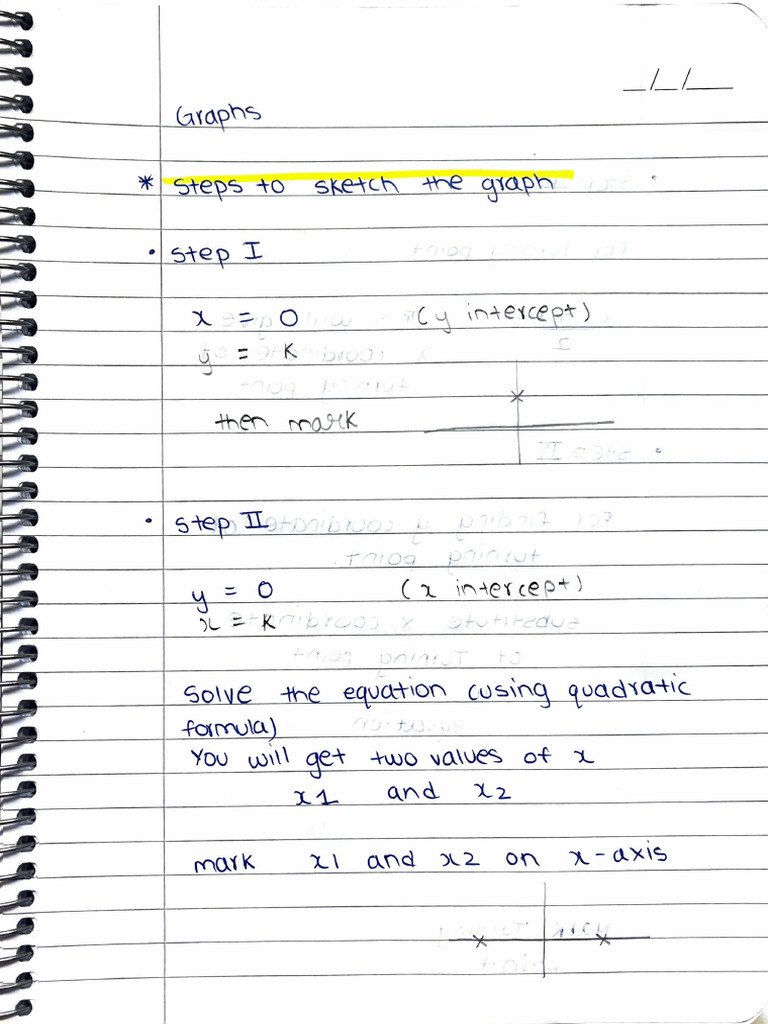 _/_/__
Graphs
* steps to sketch the graph
• step I
x = 0 (y intercept)
y = k
then mark
• step II
y = 0 (x intercept)
x = k
solve the equation (using quadratic
formula)
You will get two values of x
x1 and x2
mark x1 and x2 on x-axis